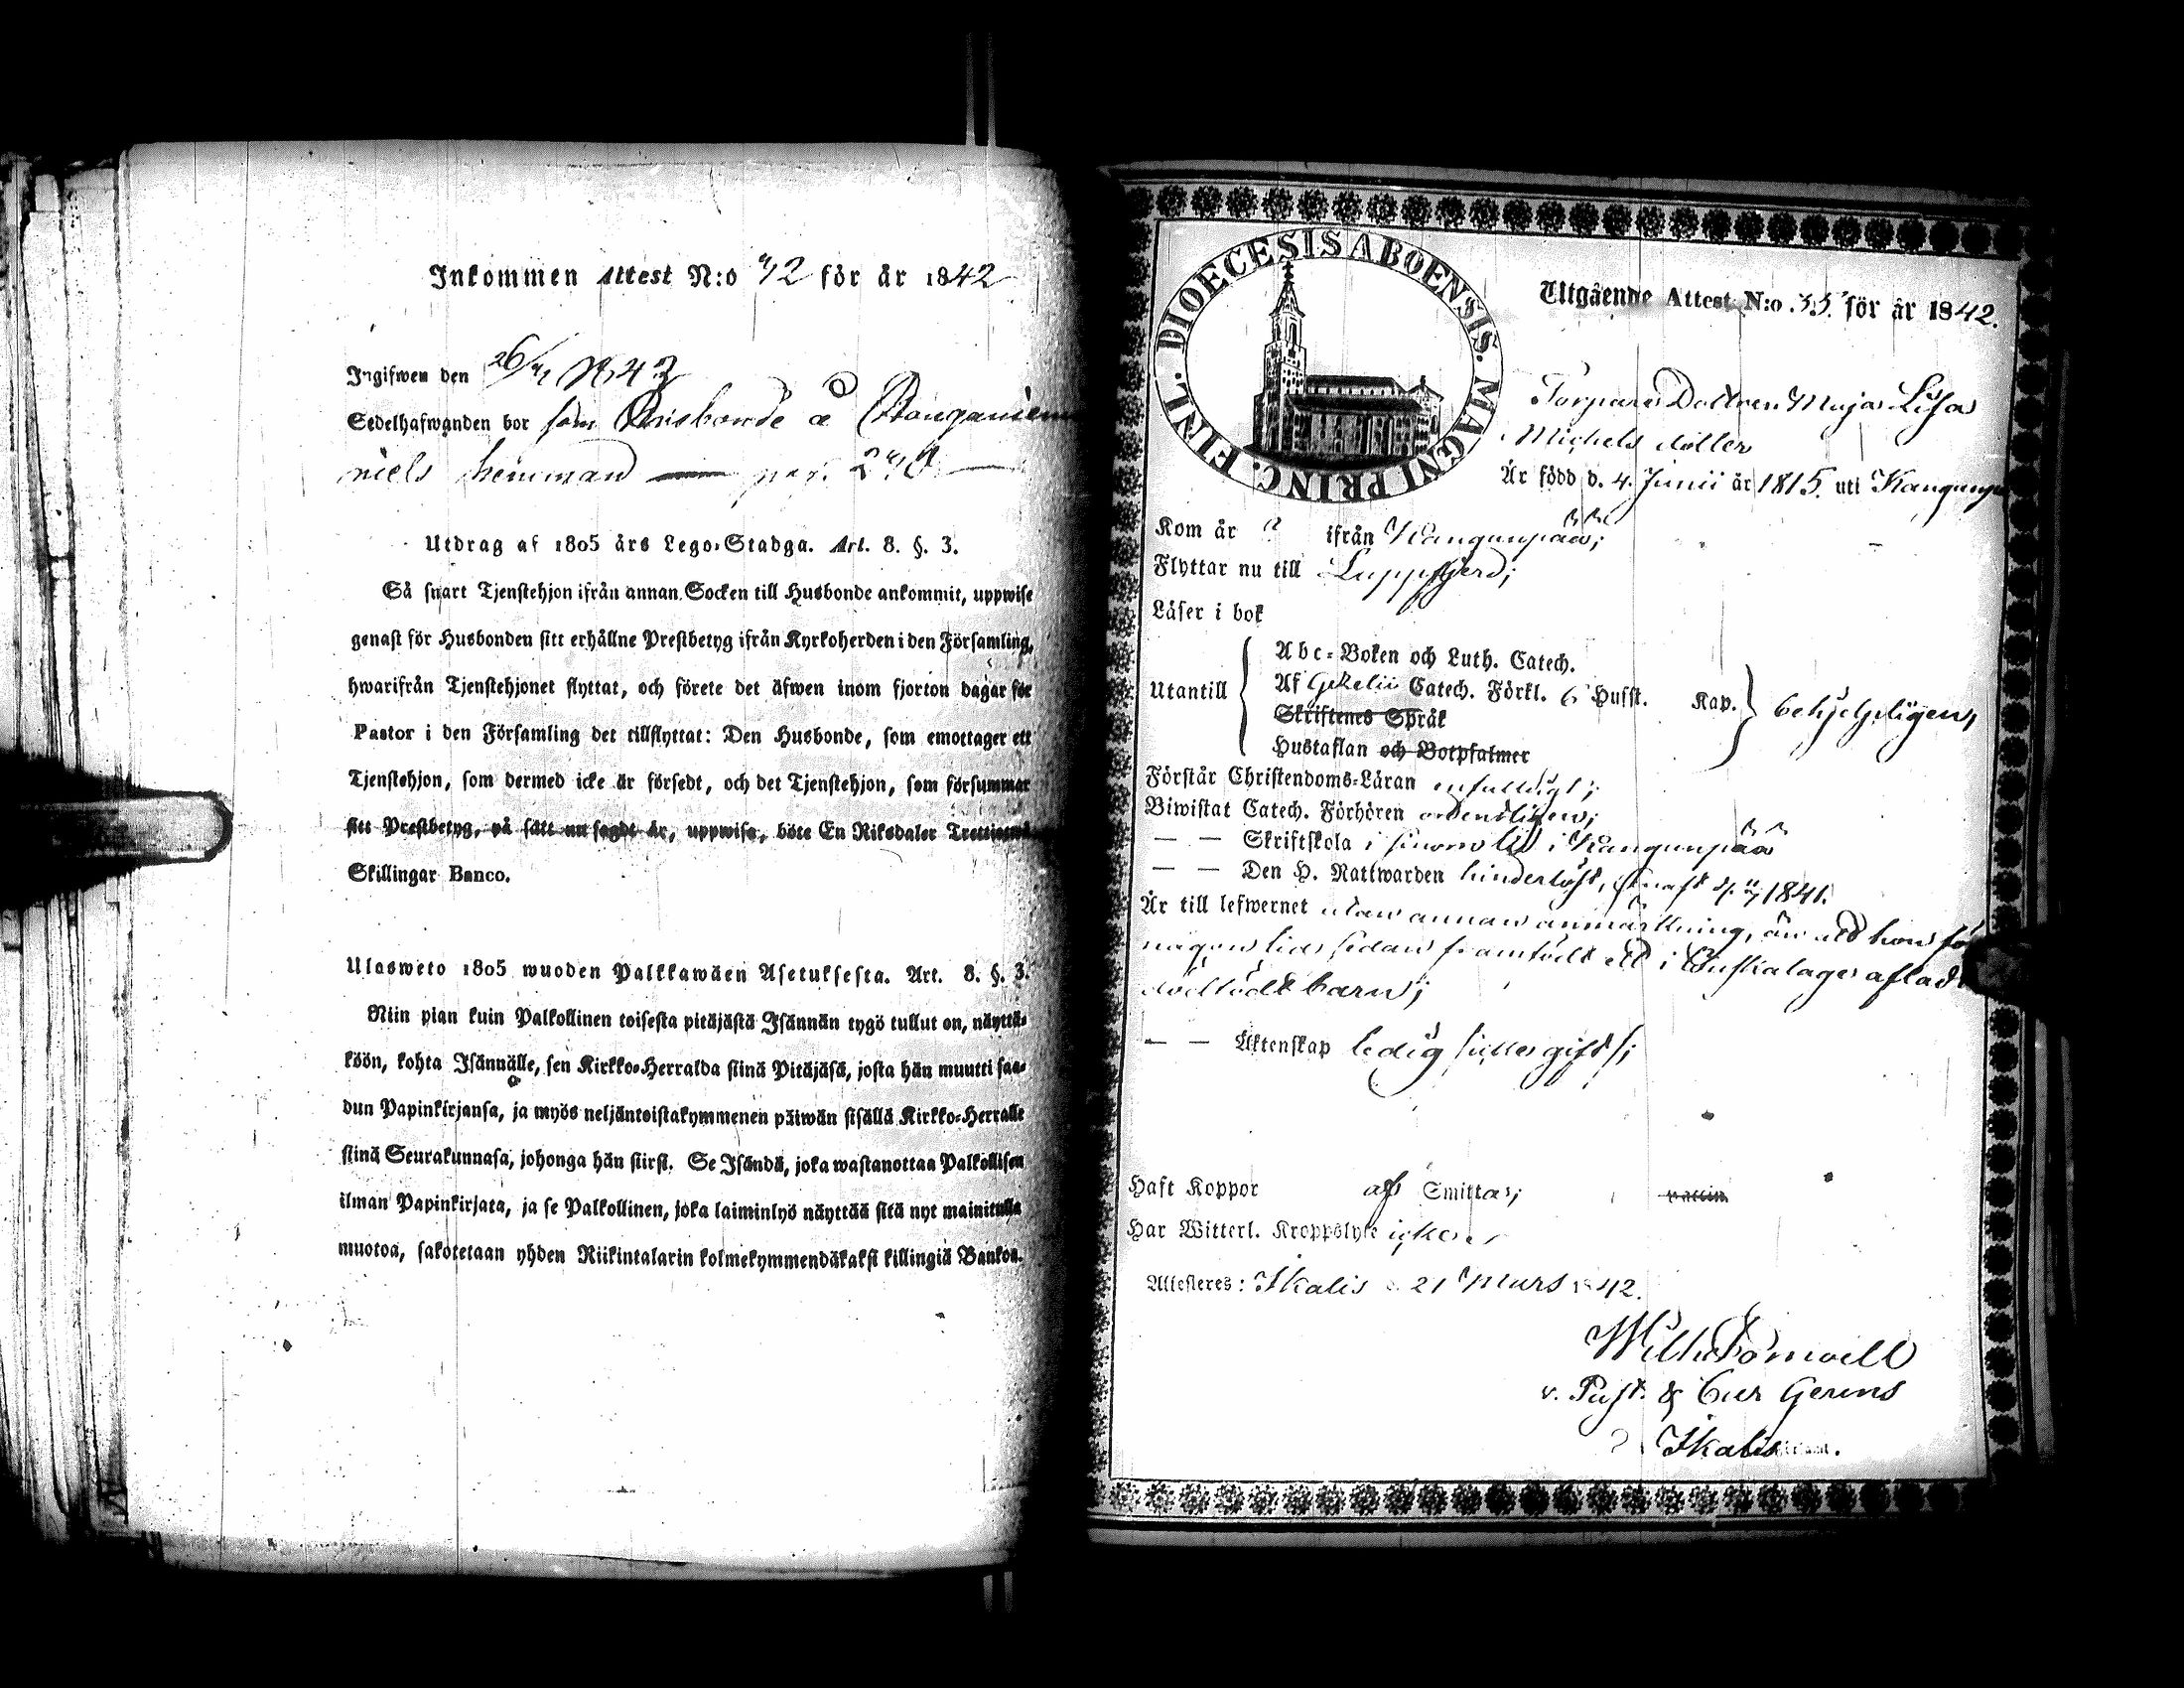 Inkommen Attest N:o 42 för år 1842
Ingifwen den 26/4 1842
Sedelhafwanden bor som Husbonde å
niels hemman — pag.
Utdrag af 1805 års Lego-Stadga. Art. 8. §. 3.
Så snart Tjenstehjon ifrån annan Socken till Husbonde ankommit, uppwise
genast för Husbonden sitt erhållne Prestbetyg ifrån Kyrkoherden i den Församling,
hwarifrån Tjenstehjonet flyttat, och förete det äfwen inom fjorton dagar för
Pastor i den Församling det tillflyttat: Den Husbonde, som emottager ett
Tjenstehjon, som dermed icke är försedt, och det Tjenstehjon, som försummar
sitt Prestbetyg, på sätt nu sagdt är, uppwisa, böte En Riksdaler Trettiotwå
Skillingar Banco.
Ulosweto 1805 wuoden Palkkawäen Asetuksesta. Art. 8. §. 3.
Niin pian kuin Palkollinen toisesta pitäjästä Isännän tygö tullut on, näyttä-
köön, kohta Isännälle, sen Kirkko-Herralda siinä Pitäjäsä, josta hän muutti saa-
dun Papinkirjansa, ja myös neljäntoistakymmenen päiwän sisällä Kirkko-Herralle
siinä Seurakunnasa, johonga hän siirst. Se Isändä, joka wastanottaa Palkollisen
ilman Papinkirjata, ja se Palkollinen, joka laiminlyö näyttää sitä nyt mainitulla
muotoa, sakotetaan yhden Riikintalarin kolmekymmendäkaksi killingiä Bankoa.
DIOECESIS ABOENSIS. MAGNI PRINC. FINL.
Utgående Attest N:o 35 för år 1842.
Torpare Dottren Maja Lisa
Michels dotter
Är född d. 4. Junii år 1815. uti
Kom år ifrån Kangunpää;
Flyttar nu till
Läser i bok
Utantill
Abc-Boken och Luth. Catech.
Af Catech. Förkl. 6 Husst. Kap.
Skriftenes Språk
Hustaflan och Botpsalmer
behjelpligen,
Förstår Christendoms-Läran enfaldigt;
Biwistat Catech. Förhören ordentligen;
— — Skriftskola i sinom tid i Kangunpää
— — Den H. Nattwarden hinderlöst, senast 1841.
Är till lefwernet utan annan anmärkning, än att hon för
någon tid sedan framfödt ett i Löskalager aflad
dödfödt barn;
— — Äktenskap ledig till gifte;
Haft Koppor af Smitta; vaccin
Har Witterl. Kroppslyte icke
Attesteres: Ikalis d. 21 Mars 1842.
v. Past. &
Ikalis